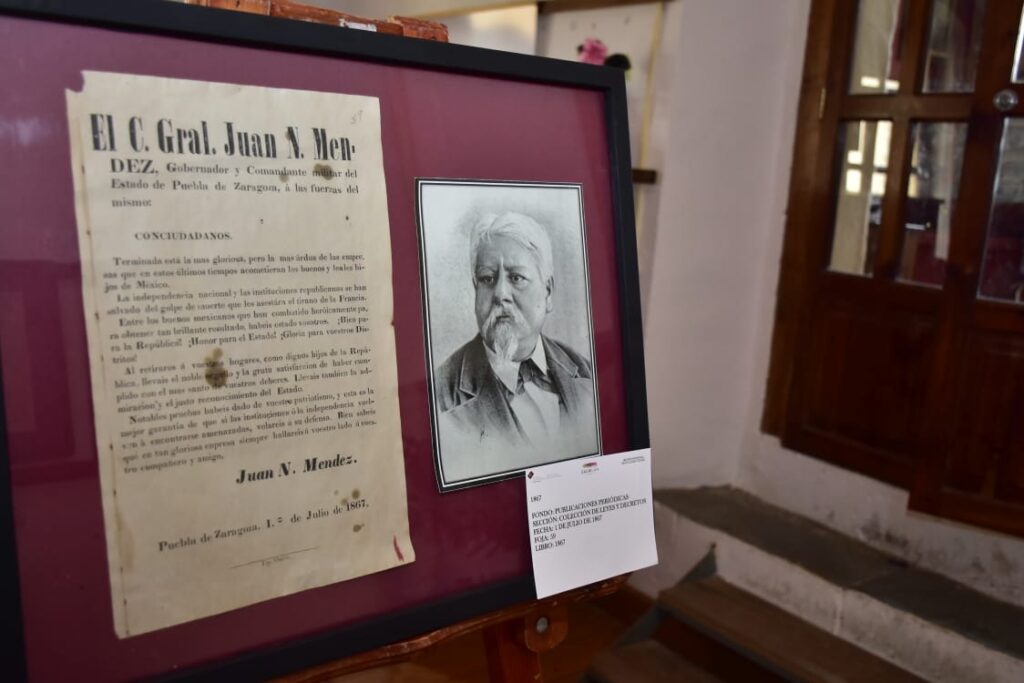 59
El C. Gral. Juan N. Men-
DEZ, Gobernador y Comandante militar del
Estado de Puebla de Zaragoza, á las fuerzas del
mismo:
CONCIUDADANOS.
Terminada está la mas gloriosa, pero la mas árdua de las empre-
sas que en estos últimos tiempos acometieran los buenos y leales hi-
jos de México.
La independencia nacional y las instituciones republicanas se han
salvado del golpe de muerte que les asestára el tirano de la Francia.
Entre los buenos mexicanos que han combatido heróicamente pa-
ra obtener tan brillante resultado, habeis estado vosotros. ¡Bien pa-
ra la República! ¡Honor para el Estado! ¡Gloria para vuestros Dis-
tritos!
Al retiraros á vuestros hogares, como dignos hijos de la Repú-
blica, llevais el noble orgullo y la grata satisfaccion de haber cum-
plido con el mas santo de vuestros deberes. Llevais tambien la ad-
miracion y el justo reconocimiento del Estado.
Notables pruebas habeis dado de vuestro patriotismo, y esta es la
mejor garantia de que si las instituciones ó la independencia vuel-
ven á encontrarse amenazadas, volareis á su defensa. Bien sabeis
que en tan gloriosa empresa siempre hallareis á vuestro lado á vues-
tro compañero y amigo,
Juan N. Mendez.
Puebla de Zaragoza, 1.º de Julio de 1867.
1867
FONDO: PUBLICACIONES PERIÓDICAS
SECCIÓN: COLECCIÓN DE LEYES Y DECRETOS
FECHA: 1 DE JULIO DE 1867
FOJA: 59
LIBRO: 1867